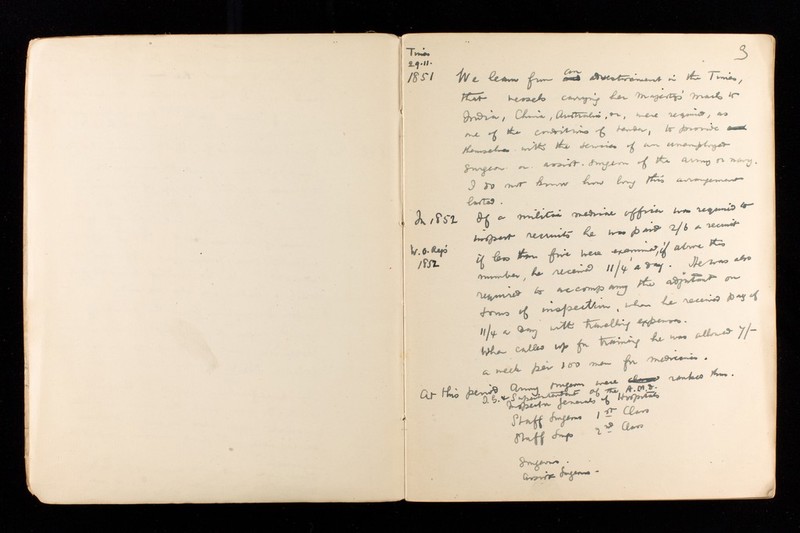 3
Times
29.11.
1851
We learn from an advertisement in the Times,
that vessels carrying her majesty's mails to
India, China, Australia, etc, were required, as
one of the conditions of tender, to provide
themselves with the services of an unemployed
surgeon or assist. surgeon of the army or navy.
I do not know how long this arrangement
lasted.
In 1852 If a militia medical officer was required to
inspect recruits he was paid 2/6 a recruit
W.O. Regs
1852
if less than five were examined; if above this
number, he received 11/4 a day. He was also
required to accompany the adjutant on
tours of inspection, when he received pay of
11/4 a day with travelling expenses.
When called up for training he was allowed 7/-
a week per 100 men for medicines.
At this period Army surgeons were ranked thus.
D.G. & Superintendent of the A.M.D.
Inspector Generals of Hospitals
Staff Surgeons 1st Class
Staff Surgs 2nd Class
Surgeons.
Assist Surgeons.